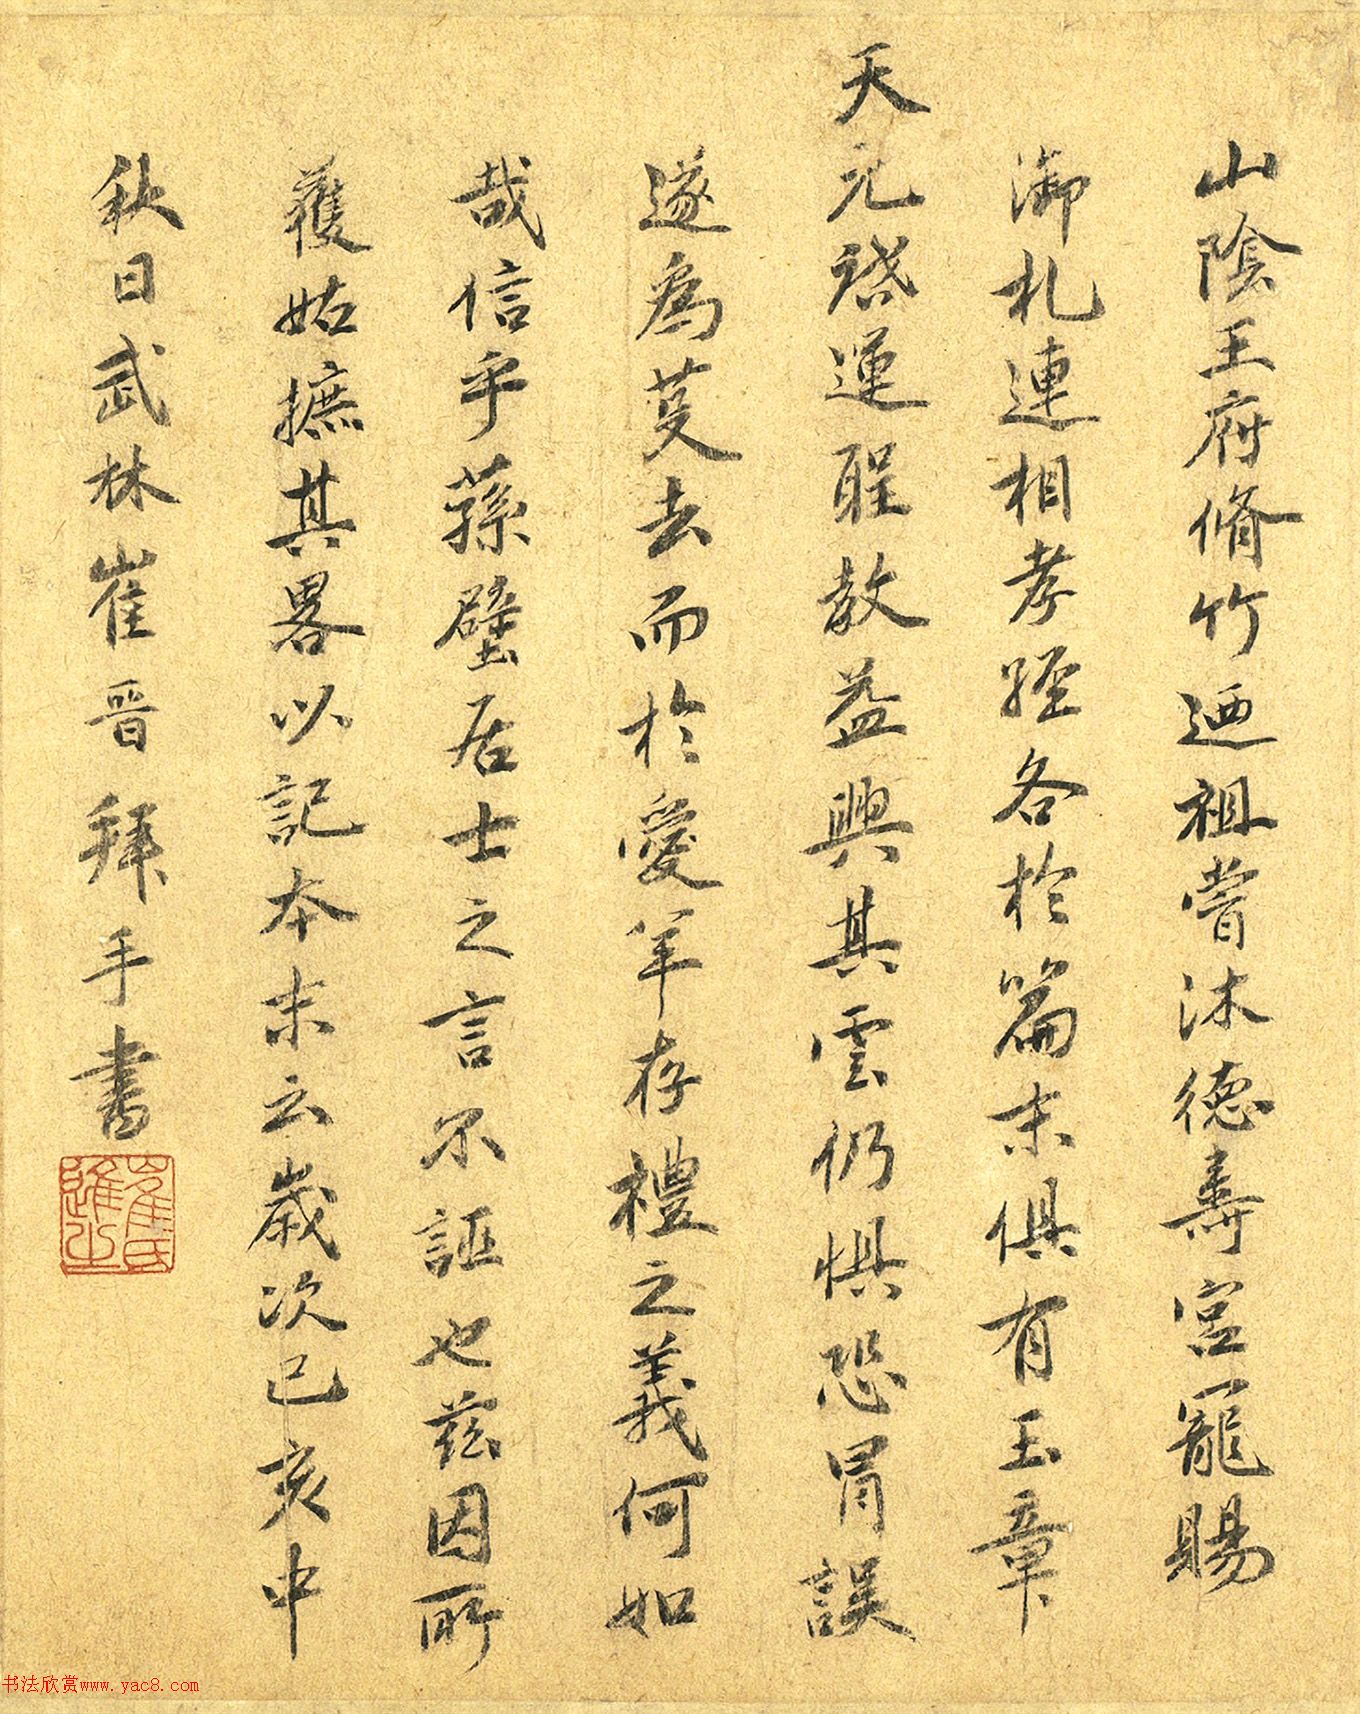 山陰王府脩竹廼祖嘗沐德壽宮寵賜
御札連相孝經各於篇末俱有玉章
天元啓運聖教益興其雲仍惧恐冒誤
遂為芟去而於愛羊存禮之義何如
哉信乎蓀壁居士之言不誣也茲因所
獲姑摭其畧以記本末云歲次己亥中
秋日武林崔晋拜手書
崔氏進之
书法欣赏www.yac8.com